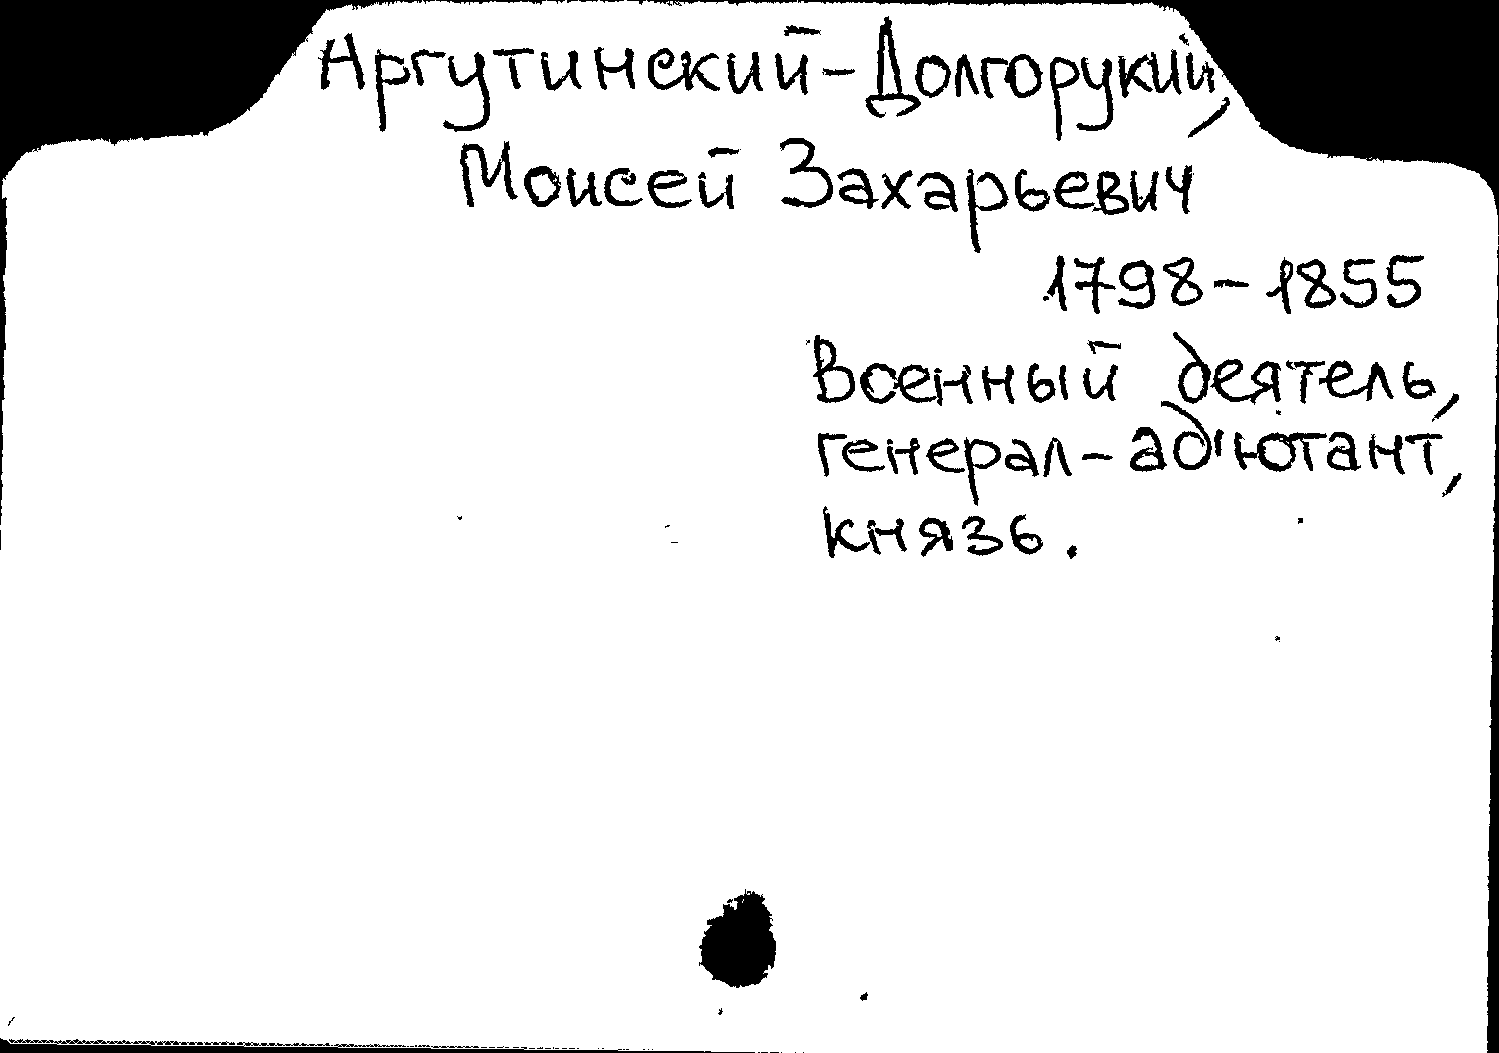 Аргутинский-Долгорукий,
Моисей Захарьевич
1798-1855
Военный деятель,
генерал-ад'ютант,
князь.